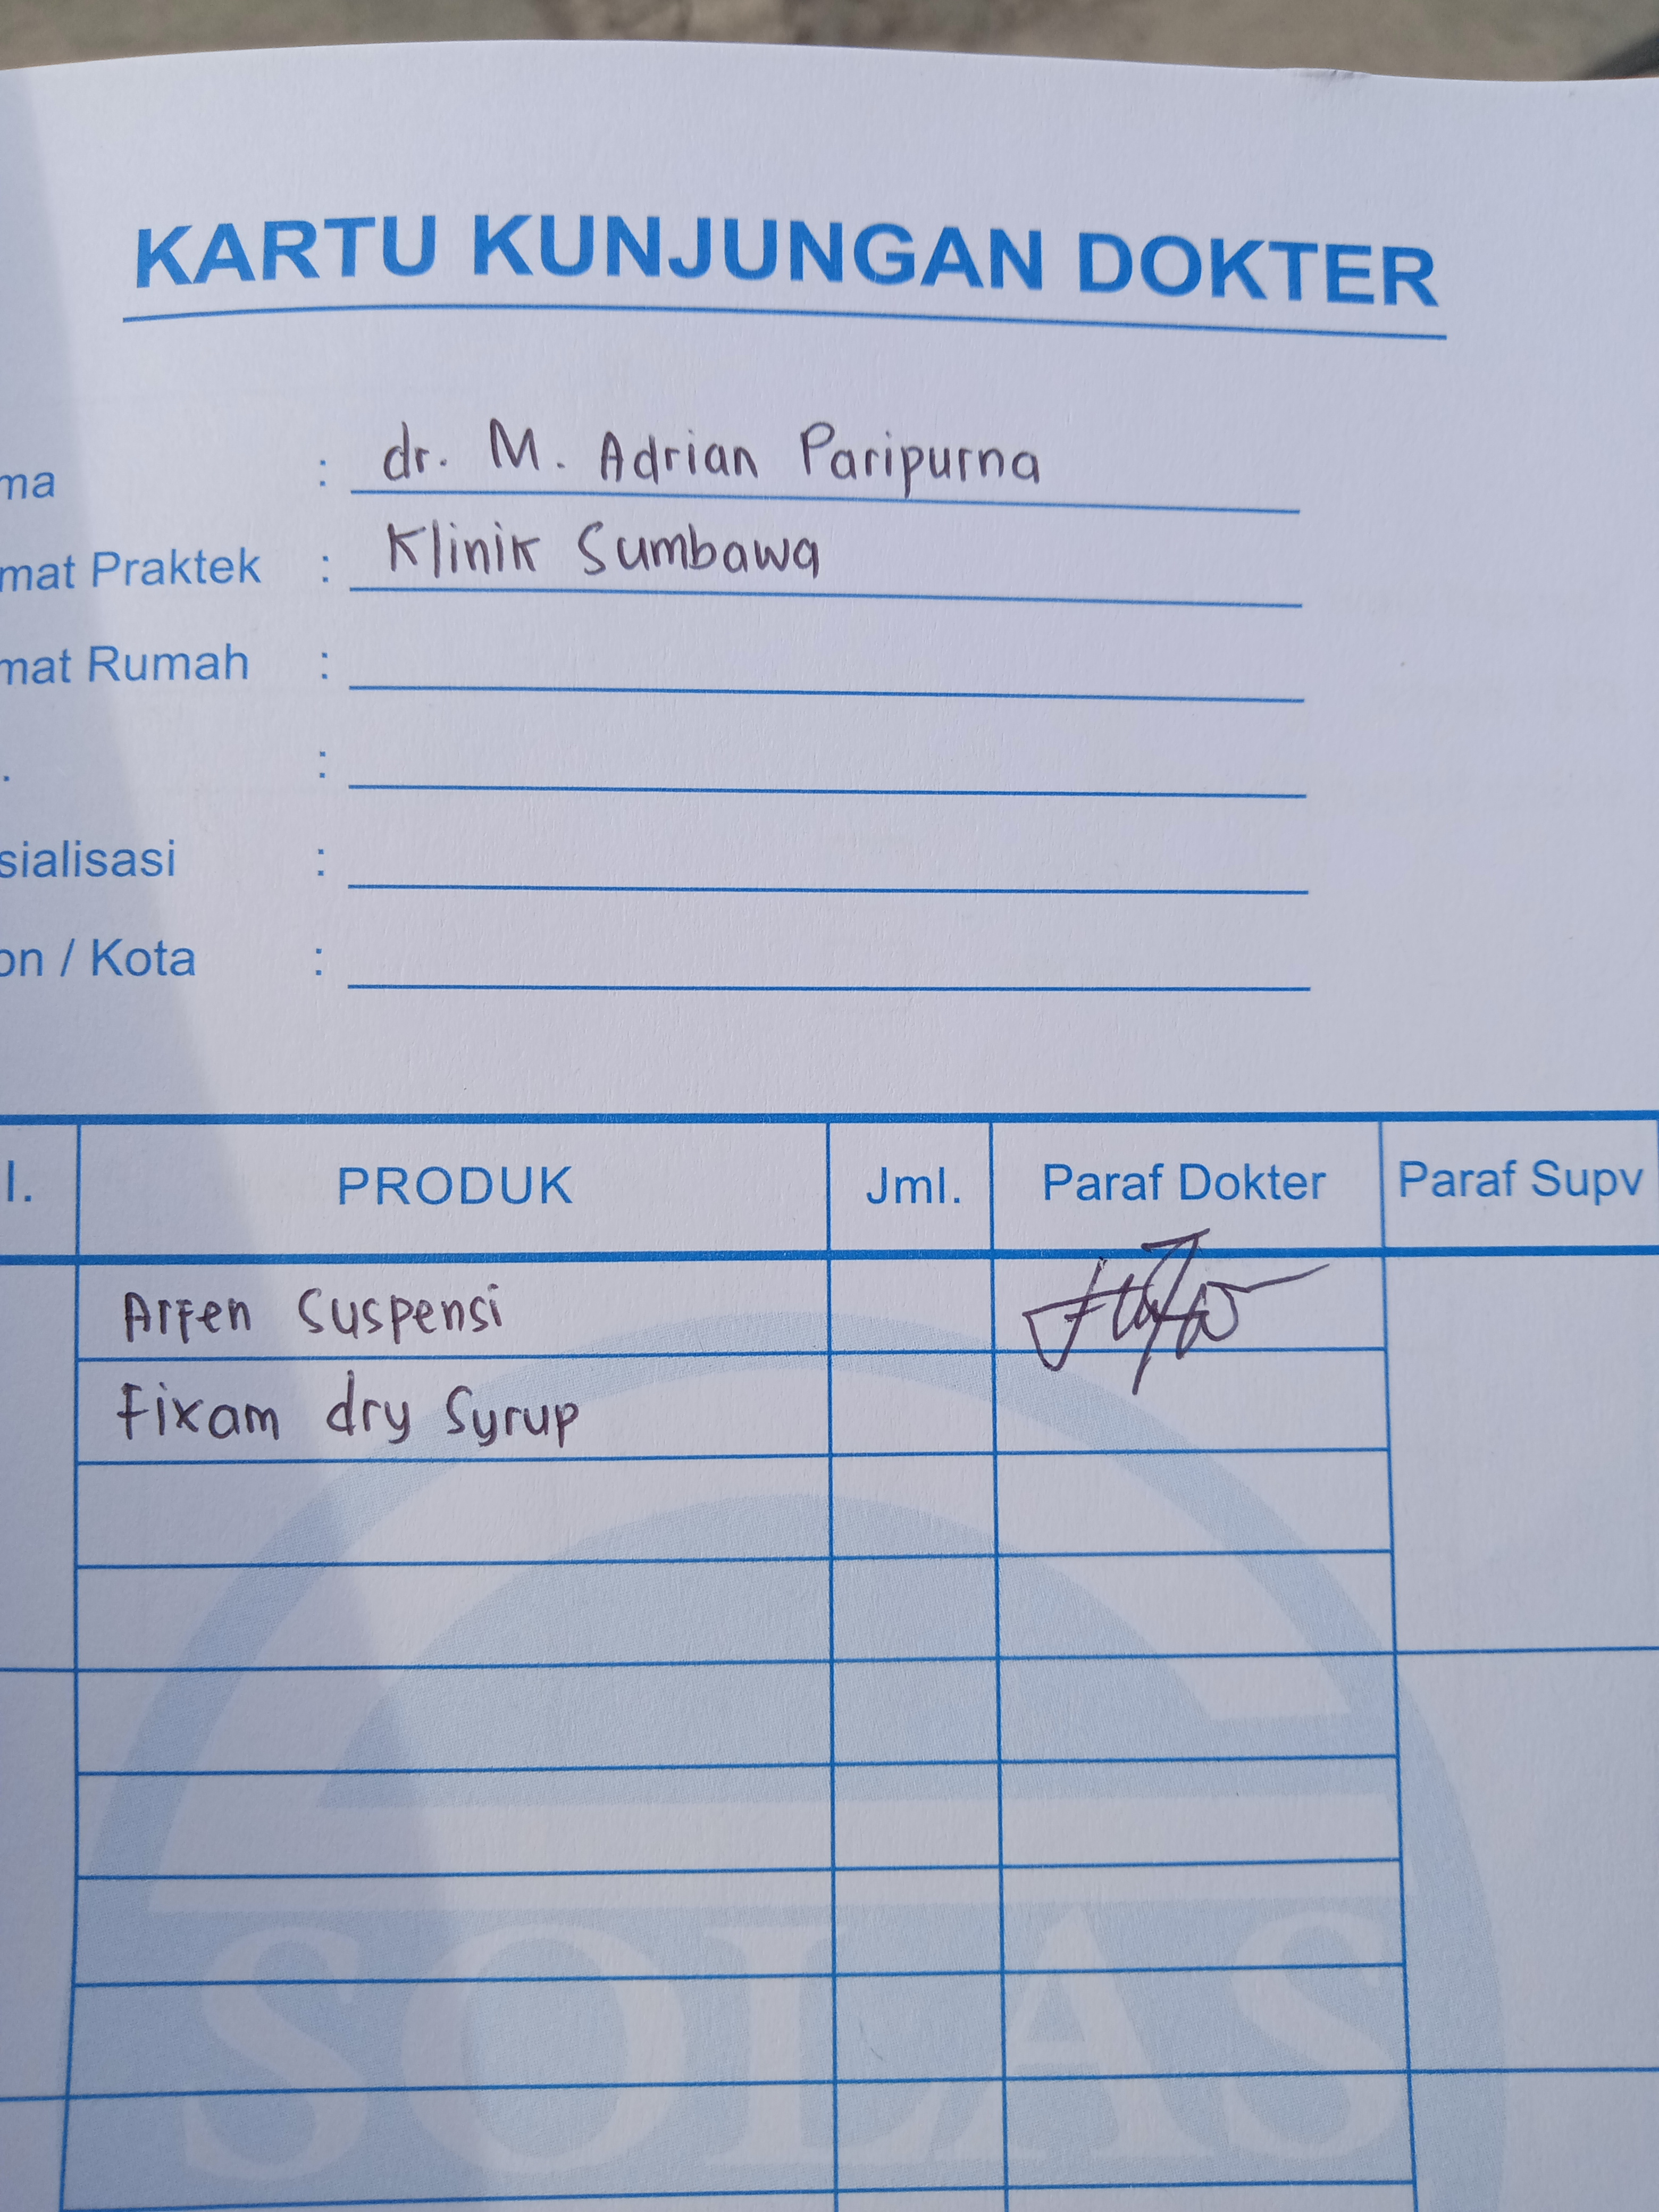 KARTU KUNJUNGAN DOKTER
ma : dr. M. Adrian Paripurna
mat Praktek : Klinik Sumbawa
mat Rumah :
. :
sialisasi :
on / Kota :
l. PRODUK Jml. Paraf Dokter Paraf Supv
Arfen Suspensi
Fixam dry Syrup
SOLAS